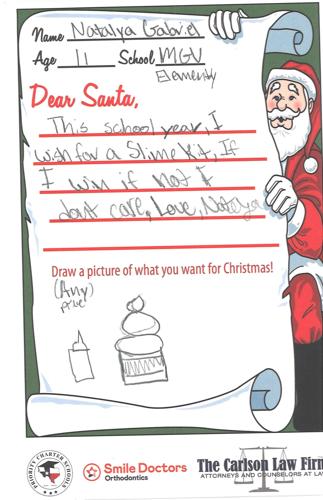 Name Natalya Gabriel
Age 11 School MGV
Elementy
Dear Santa,
This school year, I
wish for a Slime Kit, If
I win if not I
dont care, Love, Natalya
Draw a picture of what you want for Christmas!
(Any)
PRIORITY CHARTER SCHOOLS
Smile Doctors
Orthodontics
The Carlson Law Firm
ATTORNEYS AND COUNSELORS AT LA